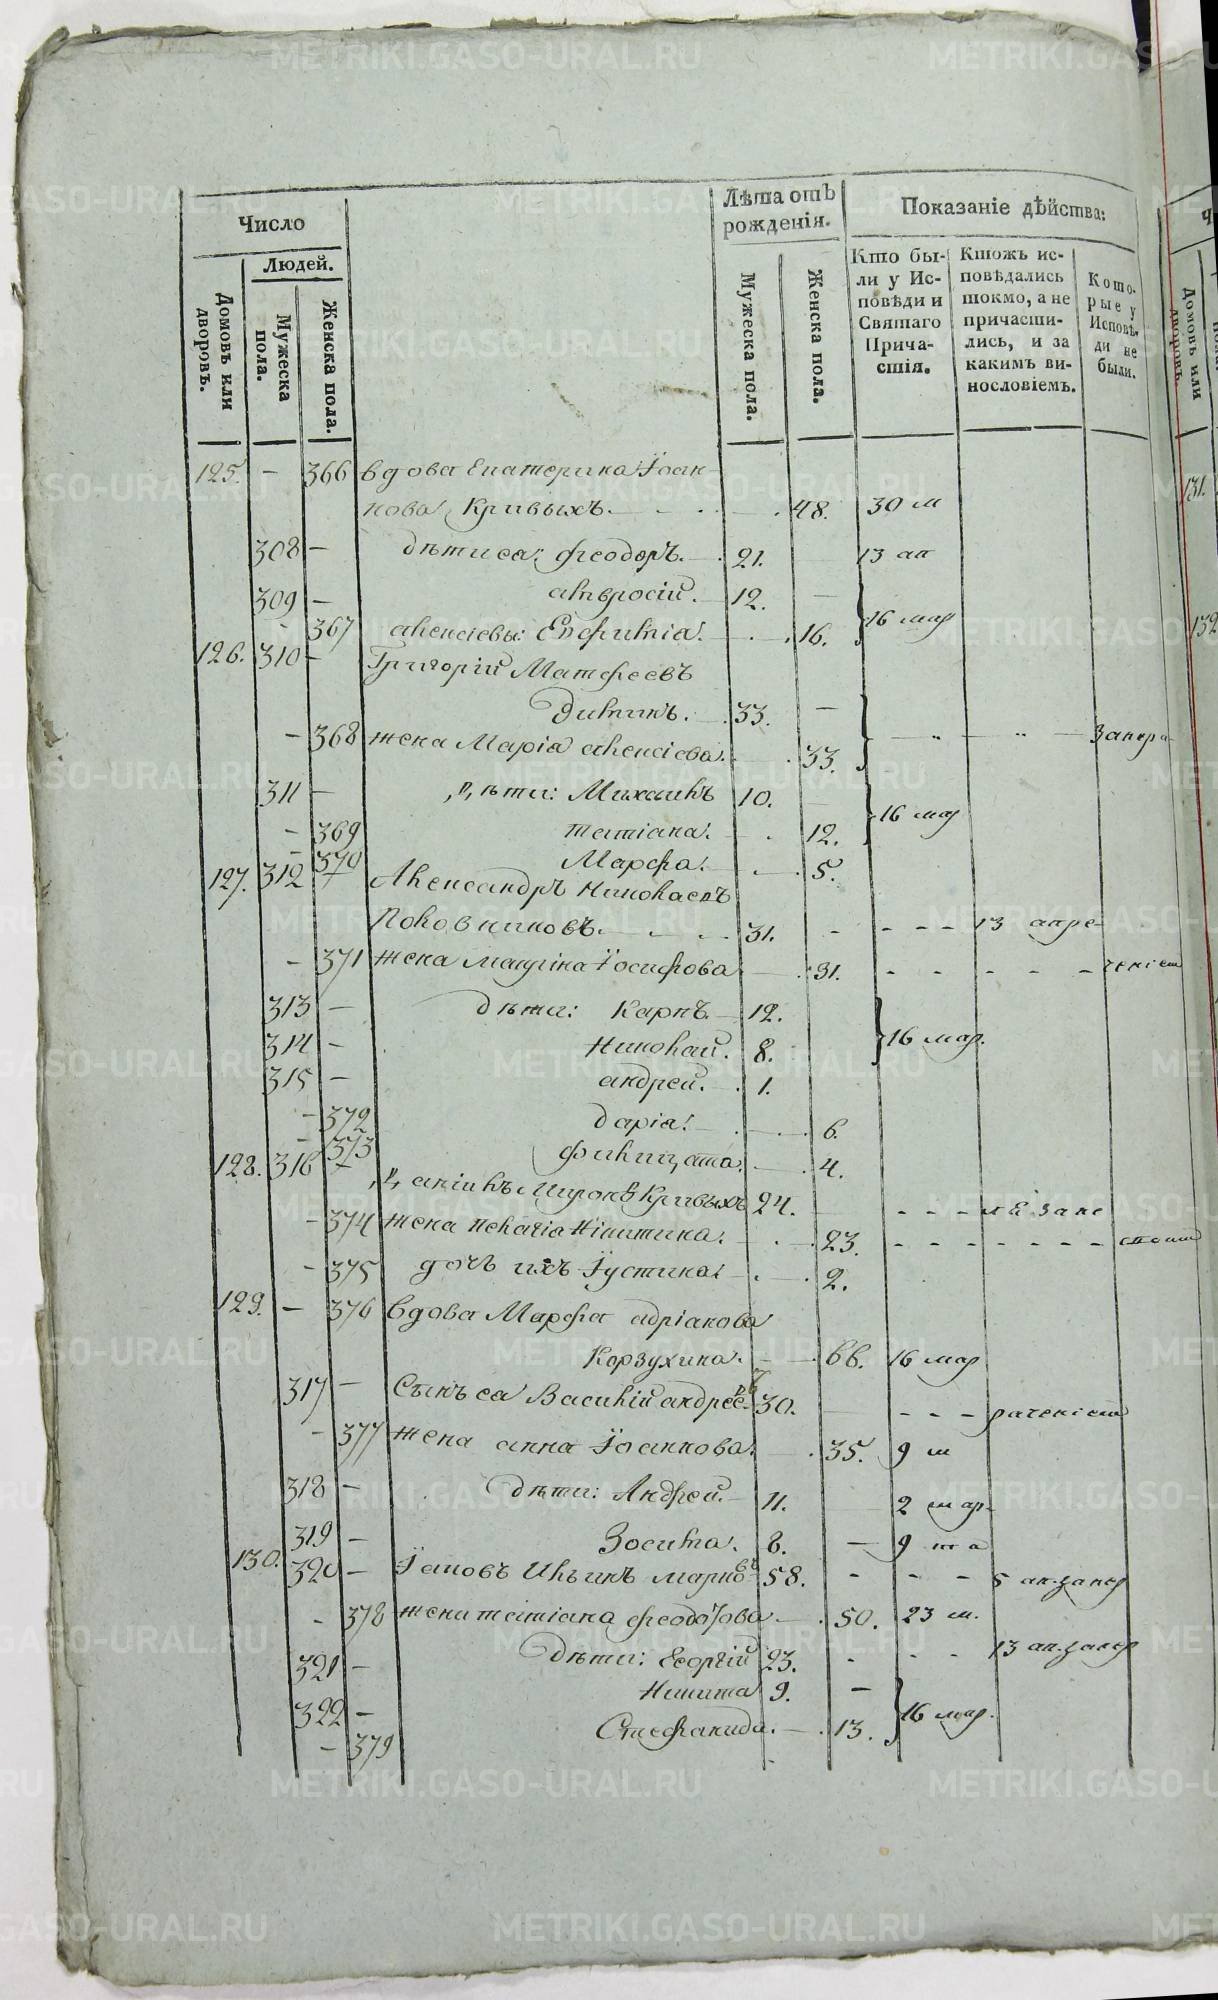 Число
Людей.
Домовъ или дворовъ.
Мужеска пола.
Женска пола.
Лѣта отъ рожденія.
Мужеска пола.
Женска пола.
Показаніе дѣйства:
Кто бы-
ли у Ис-
повѣди и
Святаго
Прича-
стія.
Ктожъ ис-
повѣдались
токмо, а не
причасти-
лись, и за
какимъ ви-
нословіемъ.
Кото-
рые у
Исповѣ-
ди не
были.
125. — 366 вдова Екатерина Іоан-
нова Кривыхъ. 48. 30 м
308 — дѣти еа: Феодоръ. 21. 13 ап
309 — амвросій. 12. —
— 367 алексіевы: Евфимія. 16. 16 мар
126. 310 — Григорій Матфеевъ
Димикъ. 33. —
— 368 жена Марія алексіева. 33.
311 — дѣти: Михаилъ 10. —
— 369 татіана. 12. 16 мар
— 370 Марфа. 5.
127. 312 — Александръ Николаевъ
Половниковъ. 31. - - - - 13 апре-
— 371 жена Іосифова 31. - - - - -
313 — дѣти: Карпъ 12.
314 — Николай. 8. 16 мар.
315 — андрей. 1.
— 372 дарія. 6.
— 373 филицата. 4.
128. 316 — Миронъ Кривыхъ 24. —
— 374 жена пелагіа Никитина. 23. - - - - - - -
— 375 дочь ихъ Іустина 2.
129. — 376 вдова Марфа адріанова
Корзухина. 66. 16 мар
317 — Сынъ еа Василій андреевъ 30. — - - -
— 377 жена анна Іоаннова. 35. 9 м
318 — дѣти: Андрей. 11. 2 мар-
319 — Зосима. 8. — 9 ма
130. 320 — Іаковъ Ильинъ марковъ 58. - - - 5 ап.
— 378 жена татіана феодотова 50. 23 м.
321 — дѣти: Георгій 23. - - - 13 ап.
322 — Никита 9. —
— 379 Стефанида. 13. 16 мар.
131.
132
METRIKI.GASO-URAL.RU